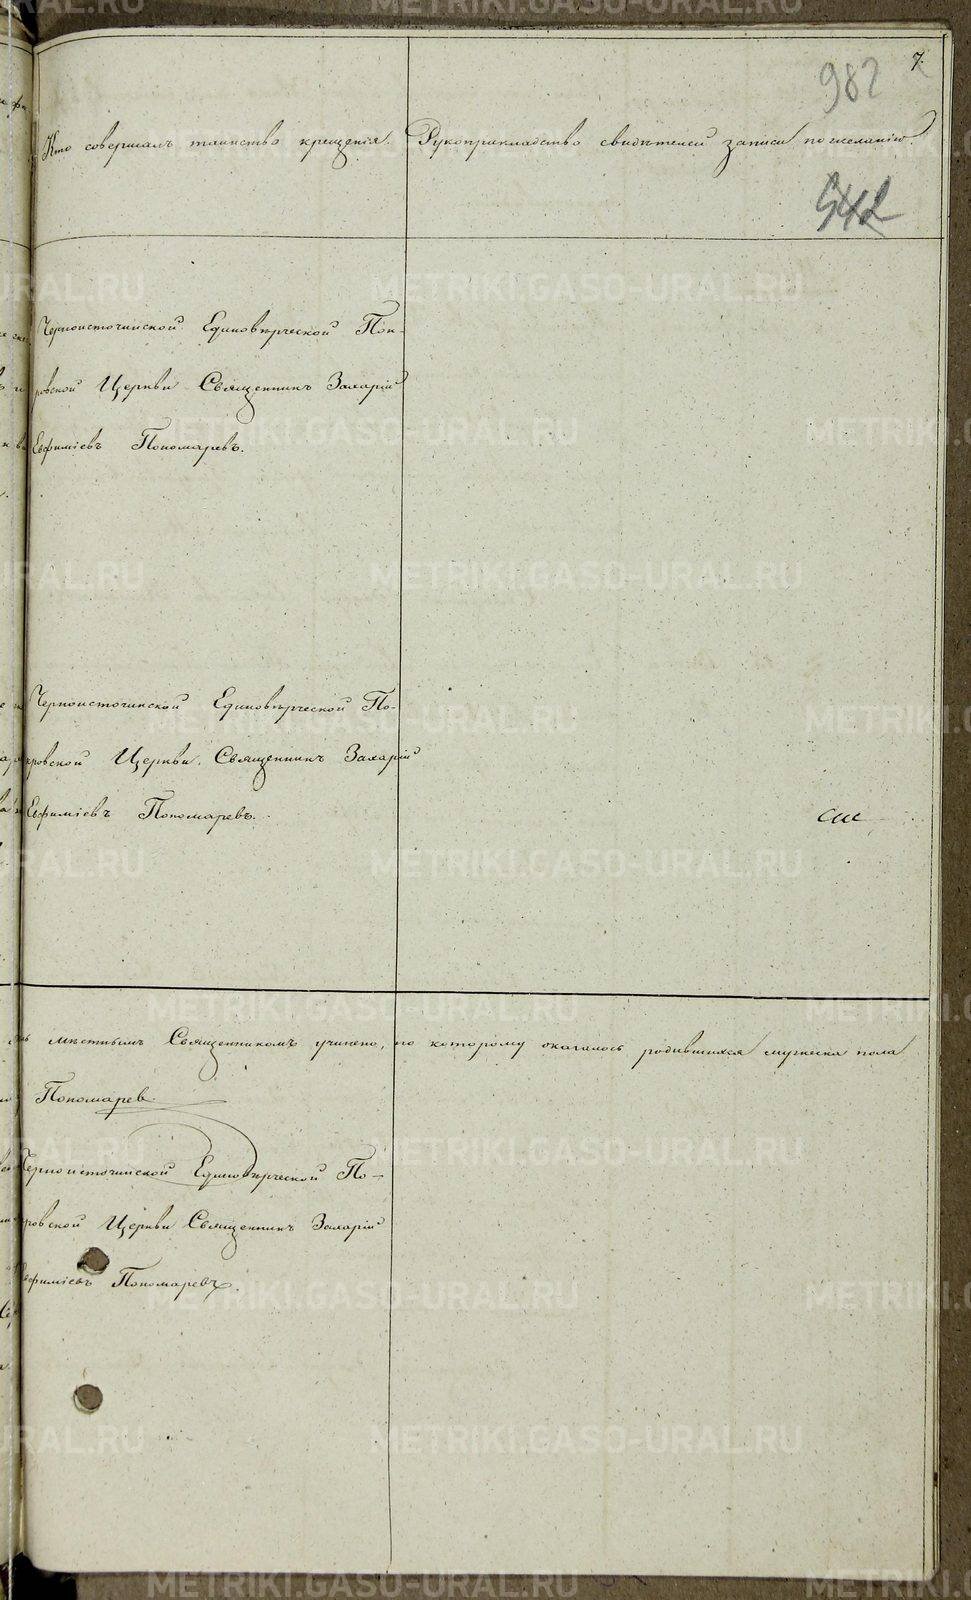 7.
982
Кто совершалъ таинство крещенія. Рукоприкладство свидѣтелей записи по желанію.
542
Черноисточинской Единовѣрческой Пок-
ровской Церкви Священникъ Захарій
Евфиміевъ Пономаревъ.
Черноисточинской Единовѣрческой По-
кровской Церкви Священникъ Захарій
Евфиміевъ Пономаревъ.
мѣстнымъ Священникомъ учинено, по которому оказалось родившихся мужеска пола
Пономарев
Черноисточинской Единовѣрческой По-
кровской Церкви Священникъ Захарій
Евфиміевъ Пономаревъ.
METRIKI.GASO-URAL.RU